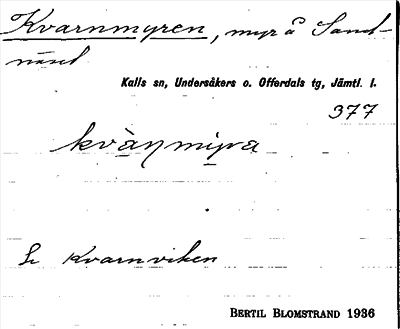 Kvarnmyren, myr å Sand-
näset
Kalls sn, Undersåkers o. Offerdals tg, Jämtl. l.
377
kvàṇmi̱ra
Kvarnviken
BERTIL BLOMSTRAND 1936